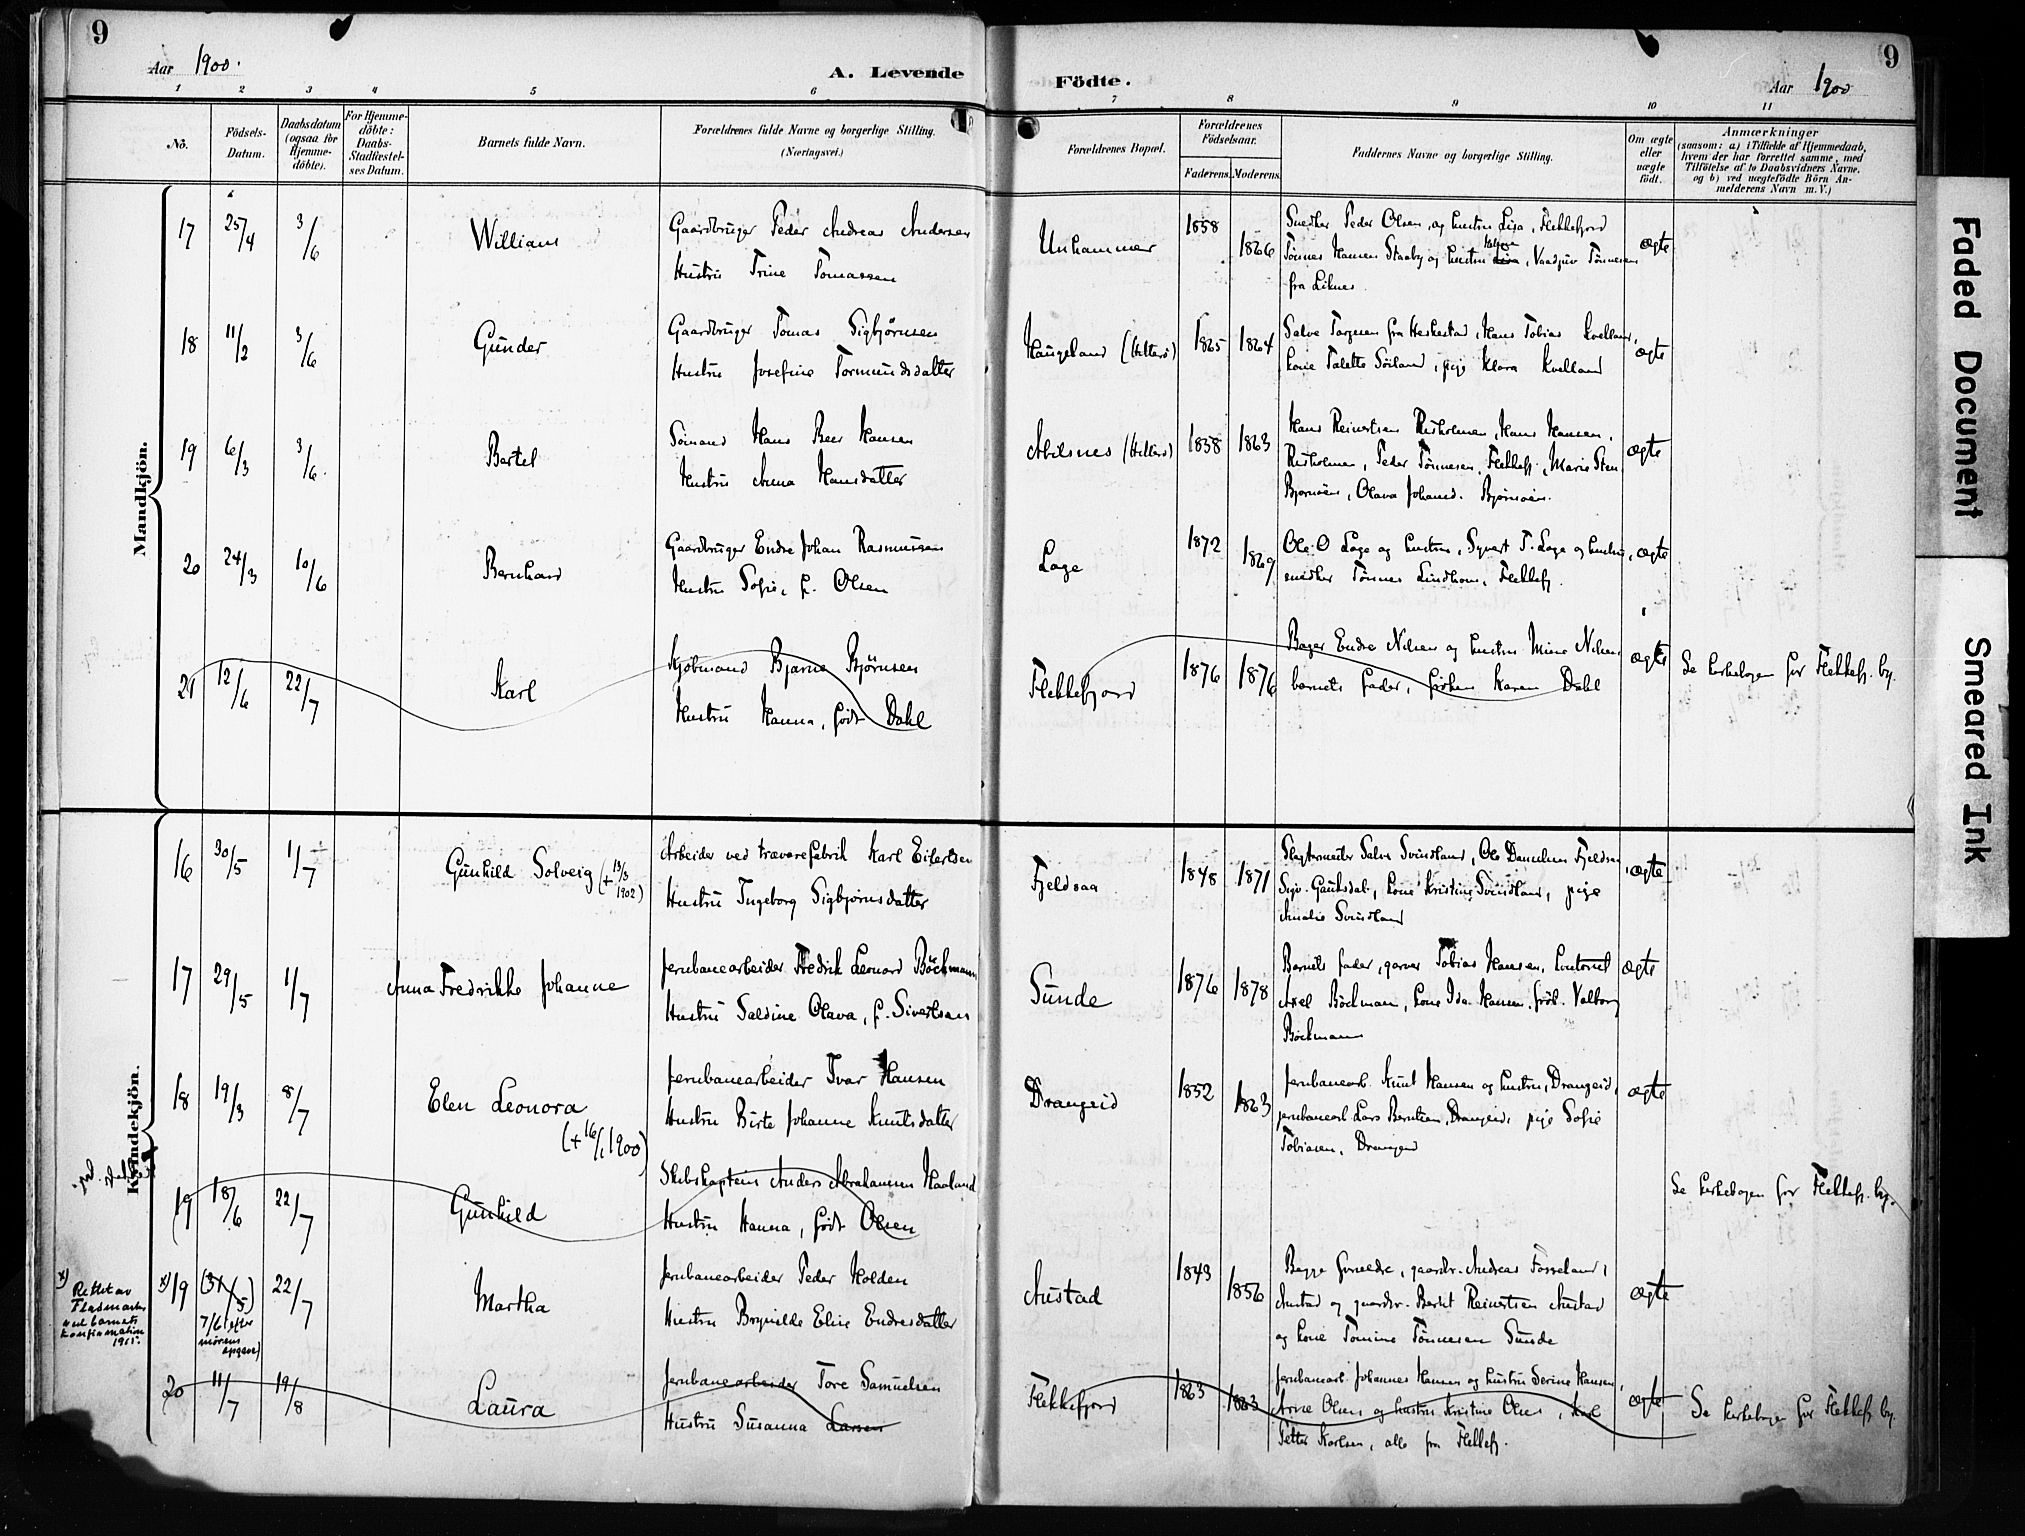 9
Aar 1900.
A. Levende
Födte.
Aar 1900
9
1 2 3 4 5 6 7 8 9 10 11
No.
Födsels-
Datum.
Daabsdatum
(ogsaa for
Hjemme-
döbte).
For Hjemme-
döbte:
Daabs-
Stadfæstel-
ses Datum.
Barnets fulde Navn.
Forældrenes fulde Navne og borgerlige Stilling.
(Næringsvei.)
Forældrenes Bopæl.
Forældrenes
Födselsaar.
Faderens. Moderens.
Faddernes Navne og borgerlige Stilling.
Om ægte
eller
uægte
födt.
Anmærkninger
(saasom: a) i Tilfælde af Hjemmedaab,
hvem der har forrettet samme, med
Tilföielse af to Daabsvidners Navne.
og b) ved uægtefödte Börn An-
melderens Navn m. V.)
Mandkjön.
17 25/4 3/6 William
Gaardbruger Peder Andreas Andersen
Hustru Trine Tomassen
Unhammer 1858 1866
Snedker Peder Olsen og hustru Lisa, Flekkefjord
Tønnes Hansen Stazby og hustru Lisa, Tønnesen
fra Liknes
ægte
18 11/2 3/6 Gunder
Gaardbruger Tomas Sigbjørnsen
Hustru Josefine Tormundsdatter
Haugeland (Hitterø) 1865 1864
Salve Torgersen fra Heskestad, Hans Tobias Kvelland,
kone Talette Søiland, pige Klara Kvelland
ægte
19 6/3 3/6. Bertel
Sømand Hans Beer Hansen
Hustru Anna Hansdatter
Abelsnes (Hitterø) 1858 1863
Hans Reinertsen Risholmen, Hans Hansen,
Risholmen, Peder Tønnesen, Flekkefj. Marie Sten
Bjørnøen, Olava Johansd. Bjørnøen.
ægte
20 24/3 10/6 Bernhard
Gaardbruger Endre Johan Rasmussen
Hustru Sofie, f. Olsen
Loge 1872 1869
Ole O Loge og hustru, Syvert T. Loge og hustru,
snedker Tønnes Lindholm, Flekkefj.
ægte
21 12/6 22/7 Karl
Kjøbmand Bjarne Bjørnsen
Hustru Hanna, født Dahl
Flekkefjord 1876 1876
Bager Endre Nilsen og hustru Mine Nilsen
barnets fader, frøken Karen Dahl
ægte
Se kirkebogen for Flekkefj. by.
Kvindekjön.
16 30/5 1/7 Gunhild Solveig (+ 13/3 1902)
Arbeider ved trævarefabrik Karl Eilertsen
Hustru Ingeborg Sigbjørnsdatter
Fjeldsaa 1848 1871
Slagtermester Salve Svindland, Ole Danielsen Fjeldsaa
Sigv. Gauksdal, kone Kristine Svindland, pige
Amalie Svindland
ægte
17 29/5 1/7 Anna Fredrikke Johanne
Jernbanearbeider Fredrik Leonard Böckmann
Hustru Saldine Olava, f. Sivertsen
Sunde 1876 1878
Barnets fader, garver Tobias Hansen, kontorist
Axel Böckman, kone Ida Hansen, frök. Valborg
Böckmann
ægte
18 19/3 8/7 Elen Leonora
(+ 16/1 1900)
Jernbanearbeider Ivar Hansen
Hustru Birte Johanne Knutsdatter
Drangeid 1852 1863
Jernbanearb. Knut Hansen og hustru, Drangeid,
jernbanearb Lars Berntsen, Drangeid, pige Sofie
Tobiasen, Drangeid
ægte
19 18/6 22/7 Gunhild
Skibskaptein Anders Abrahamsen Haaland
Hustru Hanna, født Olsen
Se kirkebogen for Flekkefj. by.
x) Rettet av
ved barnets
konfirmation
1915.
x) 19 (31/5) 22/7 Martha
7/6 (efter
morens
opgave)
Jernbanearbeider Peder Holden
Hustru Brynilde Eline Endresdatter
Austad 1843 1856
Begge forældre, gaardbr. Andreas Fosseland,
Austad og gaardbr. Bertit Reinertsen Austad
og kone Tomine Tönnesen Sunde
ægte
20 11/7 19/8 Laura
Jernbanearbeider Tore Samuelsen
Hustru Susanna Larsen
Flekkefjord 1863 1863
Jernbanearb. Johannes Hansen og hustru Serine Hansen,
Arne Olsen og hustru Kristine Olsen, Karl
Petter Karlsen, alle fra Flekkefj.
ægte
Se kirkebogen for Flekkefj. by.
Faded Document
Smeared Ink